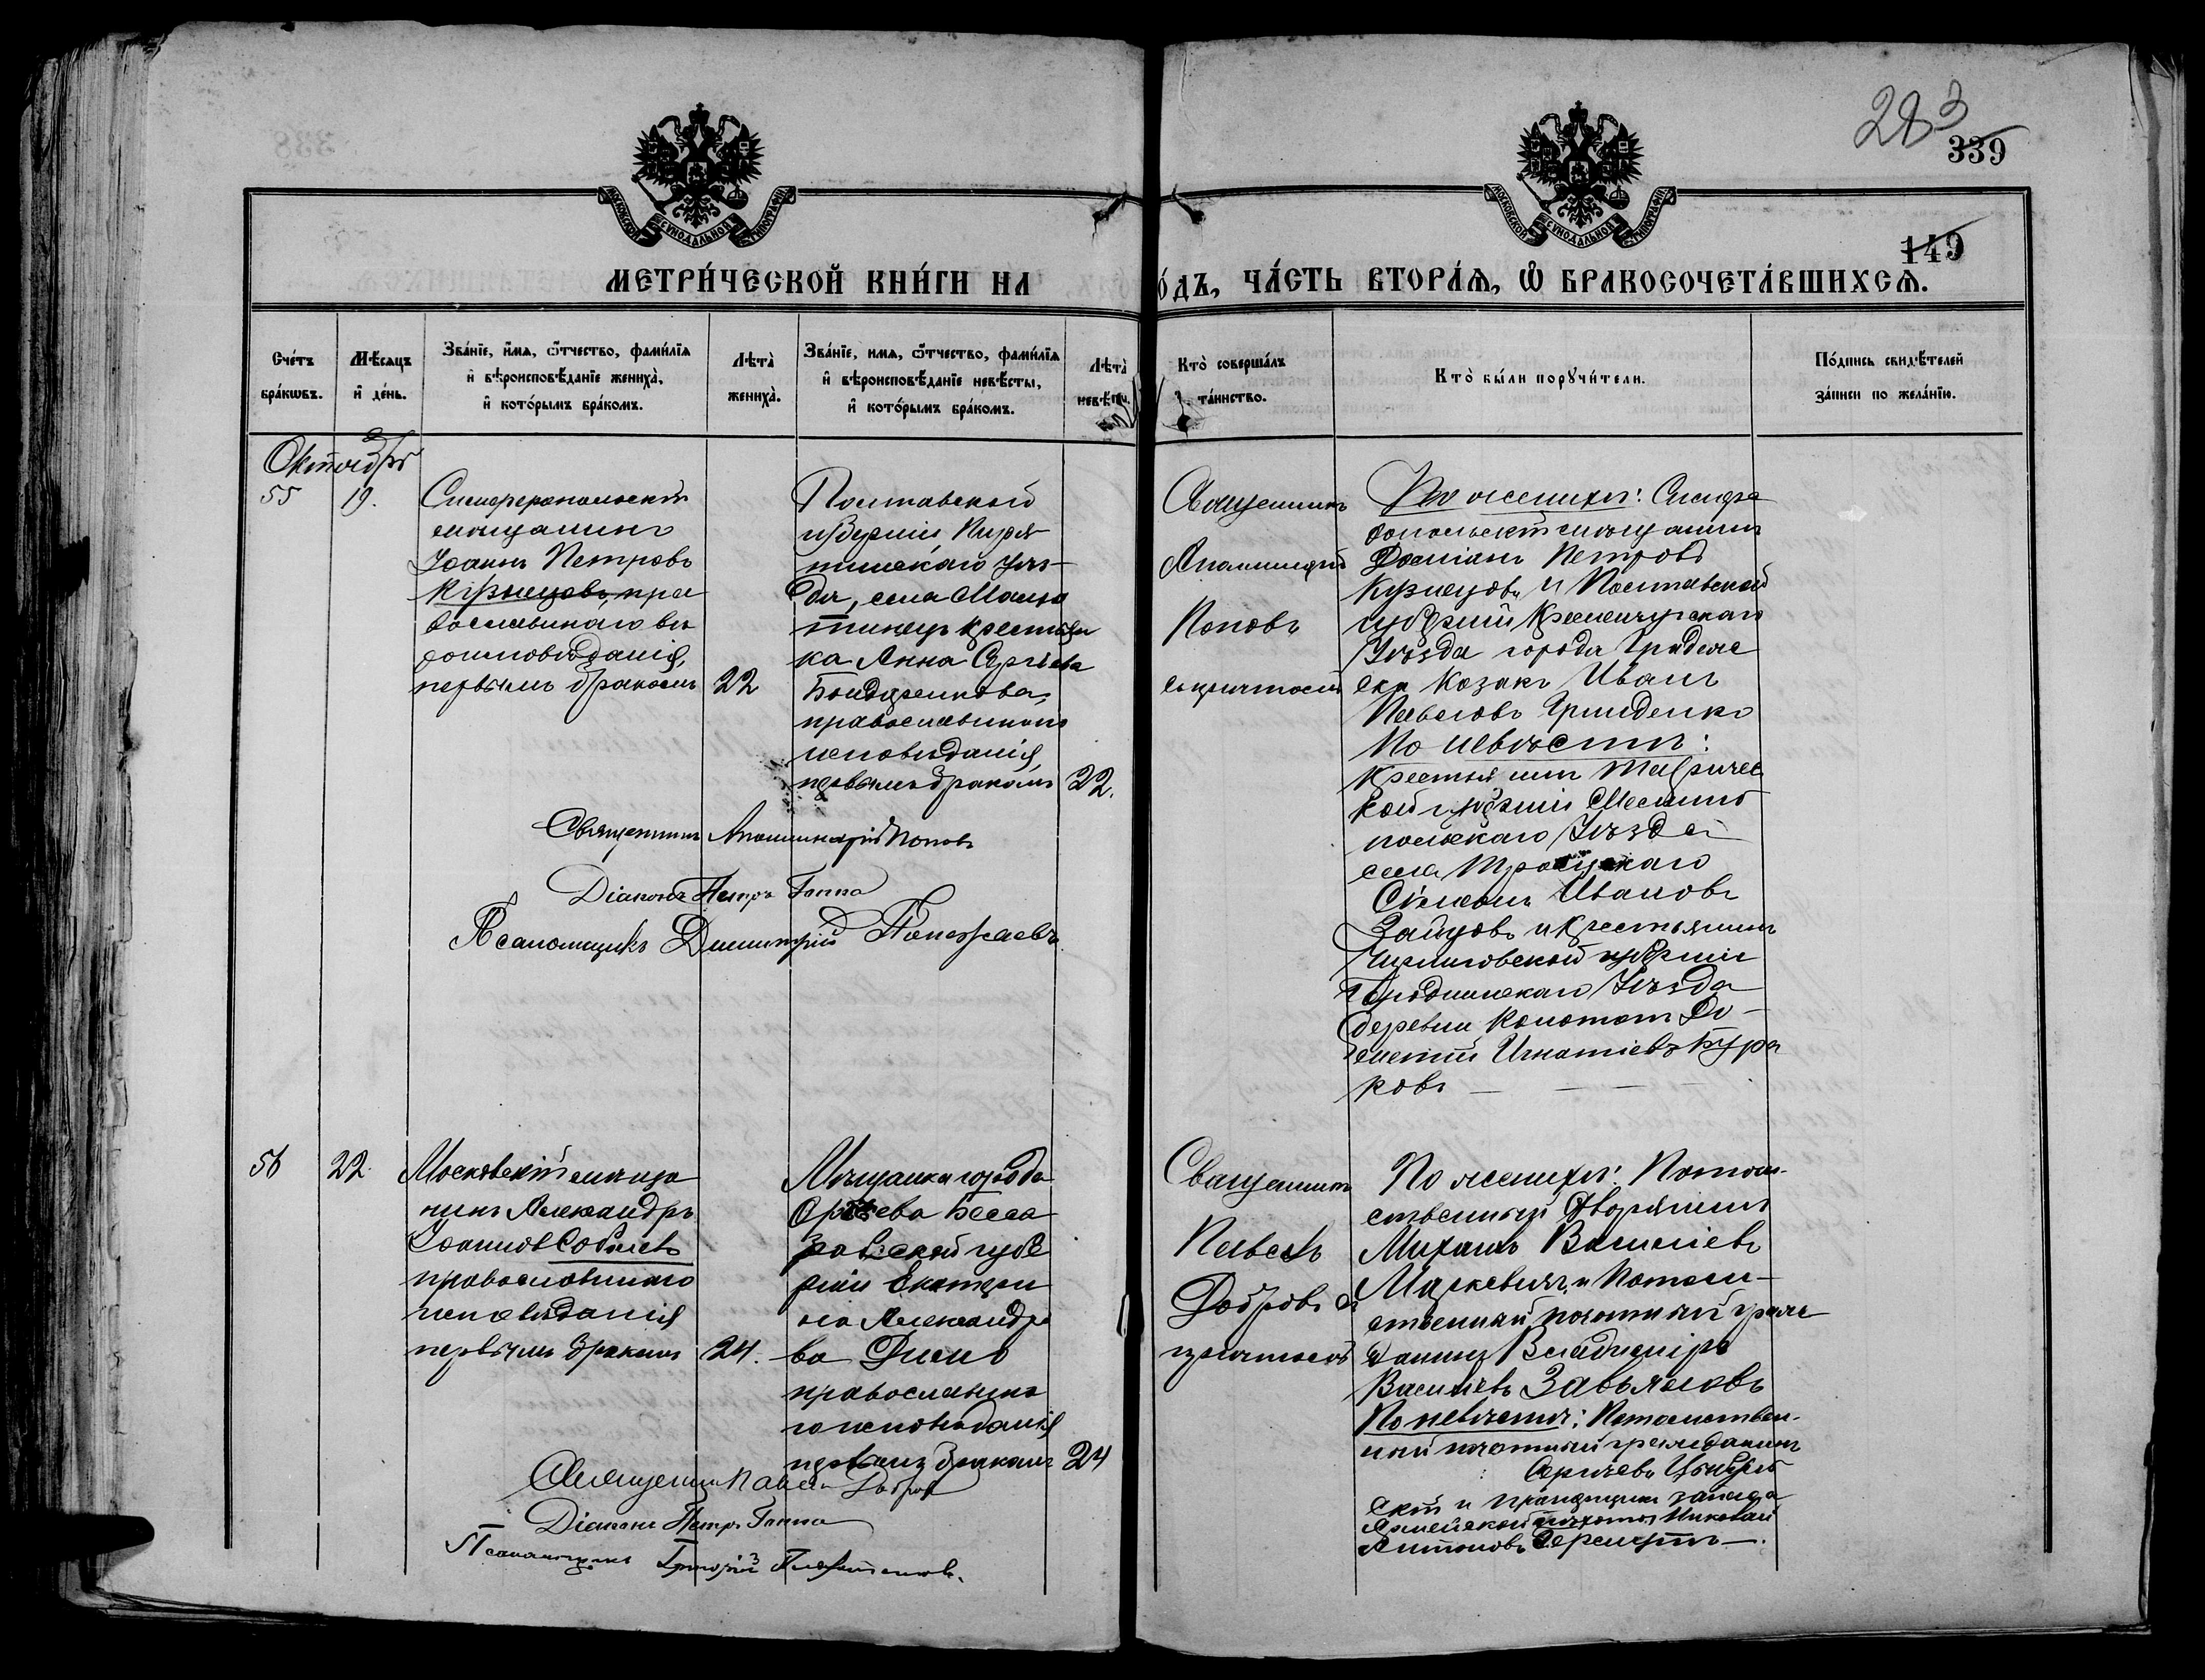 283
339
149
МОСКОВСКОЙ СѴНОДАЛЬНОЙ ТИПОГРАФІИ
МОСКОВСКОЙ СѴНОДАЛЬНОЙ ТИПОГРАФІИ
МЕТРИ́ЧЕСКОЙ КНИ́ГИ НА
О́ДЪ, ЧА́СТЬ ВТОРА́Ѧ, Ѽ БРАКОСОЧЕТА́ВШИХСѦ.
Сче́тъ бра́кѡвъ.
Мѣ́сяцъ и҆ де́нь.
Зва́нїе, и҆́мѧ, ѻ҆́тчество, фами́лїѧ
и҆ вѣроисповѣ́данїе жениха̀,
и҆ кото́рымъ бра́комъ.
Лѣта̀ жениха̀.
Зва́нїе, имѧ, ѻ҆́тчество, фами́лїѧ
и҆ вѣроисповѣ́данїе невѣ́сты,
и҆ кото́рымъ бра́комъ.
Лѣта̀ невѣ́сты.
Кто̀ соверша́лъ та́инство.
Кто̀ бы́ли порꙋчи́тели.
По́дпись свидѣ́телей
за́писи по жела́нїю.
Октябрь
55
19.
Симферопольскій
мѣщанинъ
Іоаннъ Петровъ
Кузнецовъ, пра
вославнаго вѣ
роисповѣданія,
первымъ бракомъ
22
Полтавской
губерніи Пиря
тинскаго уѣз-
да, села
крестьян
ка Анна Сергіева
Бондаренкова,
православнаго
исповѣданія,
первымъ бракомъ
22.
Священникъ
Аполлинарій
Поповъ
съ причтомъ
По женихѣ: Симфе
ропольскій мѣщанинъ
Даміанъ Петровъ
Кузнецовъ и Полтавской
губерніи Кременчугскаго
Уѣзда города
Козакъ Иванъ
Павловъ Гриденко
По невѣстѣ:
Крестьянинъ Тавричес
кой губерніи Мелито
польскаго Уѣзда
села Троицкаго
Симеонъ Ивановъ
Зайцовъ и крестьянинъ
Черниговской губерніи
Городнинскаго Уѣзда
деревни
Игнатіевъ Бура
ковъ
Священникъ Аполлинарій Поповъ
Діаконъ Петръ Гаппа
Псаломщикъ Димитрій
56
22.
Московскій мѣща
нинъ Александръ
Іоанновъ Соболевъ
православнаго
исповѣданія
первымъ бракомъ
24.
Мѣщанка города
Оргѣева Бесса
рабской губе
рніи Екатери
на Александро
ва
православна
го исповѣданія
первымъ бракомъ
24
Священникъ
Павелъ
Добровъ съ
причтомъ
По женихѣ: Потом-
ственный Дворянинъ
Михаилъ Васильевъ
Маркевичъ и Потом-
ственный почетный граж
данинъ Владиміръ
Васильевъ Завьяловъ
По невѣстѣ: Потомствен-
ный почетный гражданинъ
Сергѣевъ
и прапорщикъ запаса
Армейской пѣхоты Николай
Антоновъ
Священникъ Павелъ Добровъ
Діаконъ Петръ Гаппа
Псаломщикъ Григорій